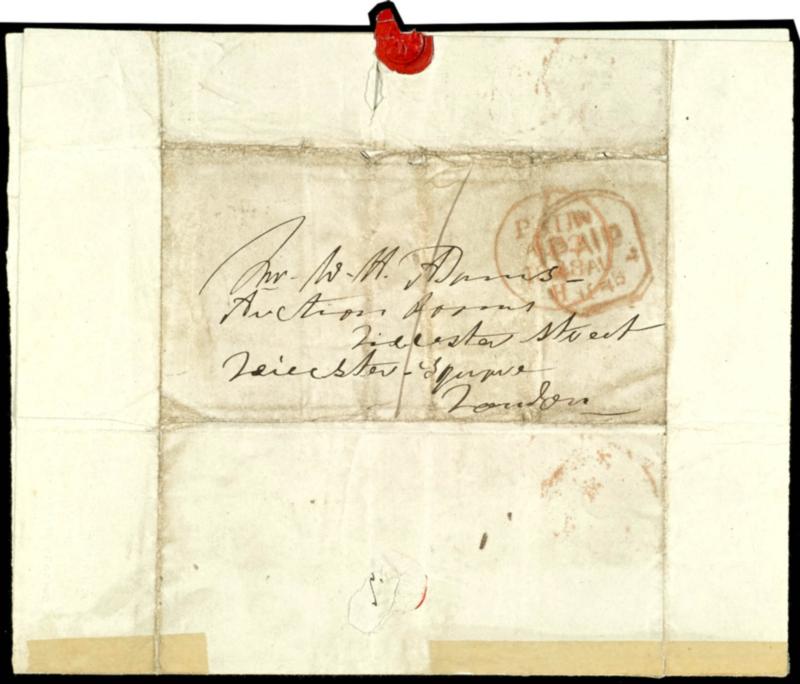 Mr. W. H. Adams -
Auction Rooms
Leicester Street
Leicester - Square
London
PAID